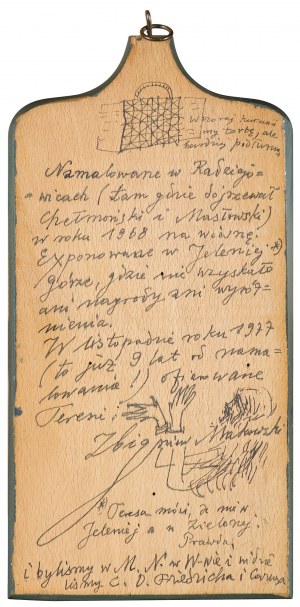 Wczoraj
my torbę, ale
bardziej
Namalowane w Radziejo-
-wicach (tam gdzie dojrzewał
Chełmoński i Masłowski)
w roku 1968 na wiosnę.
Exponowane w Jeleniej *)
Górze, gdzie nie uzyskało
ani nagrody ani wyróż-
nienia.
W listopadzie roku 1977
(to już 9 lat od nama-
lowania!) ofiarowane
Teresie i
Zbigniew Makowski
*) Teresa mówi, że nie w
Jeleniej a w Zielonej.
Prawda,
i byliśmy w M. N. w W-wie i widzie
liśmy C. D. Friedricha i Carusa